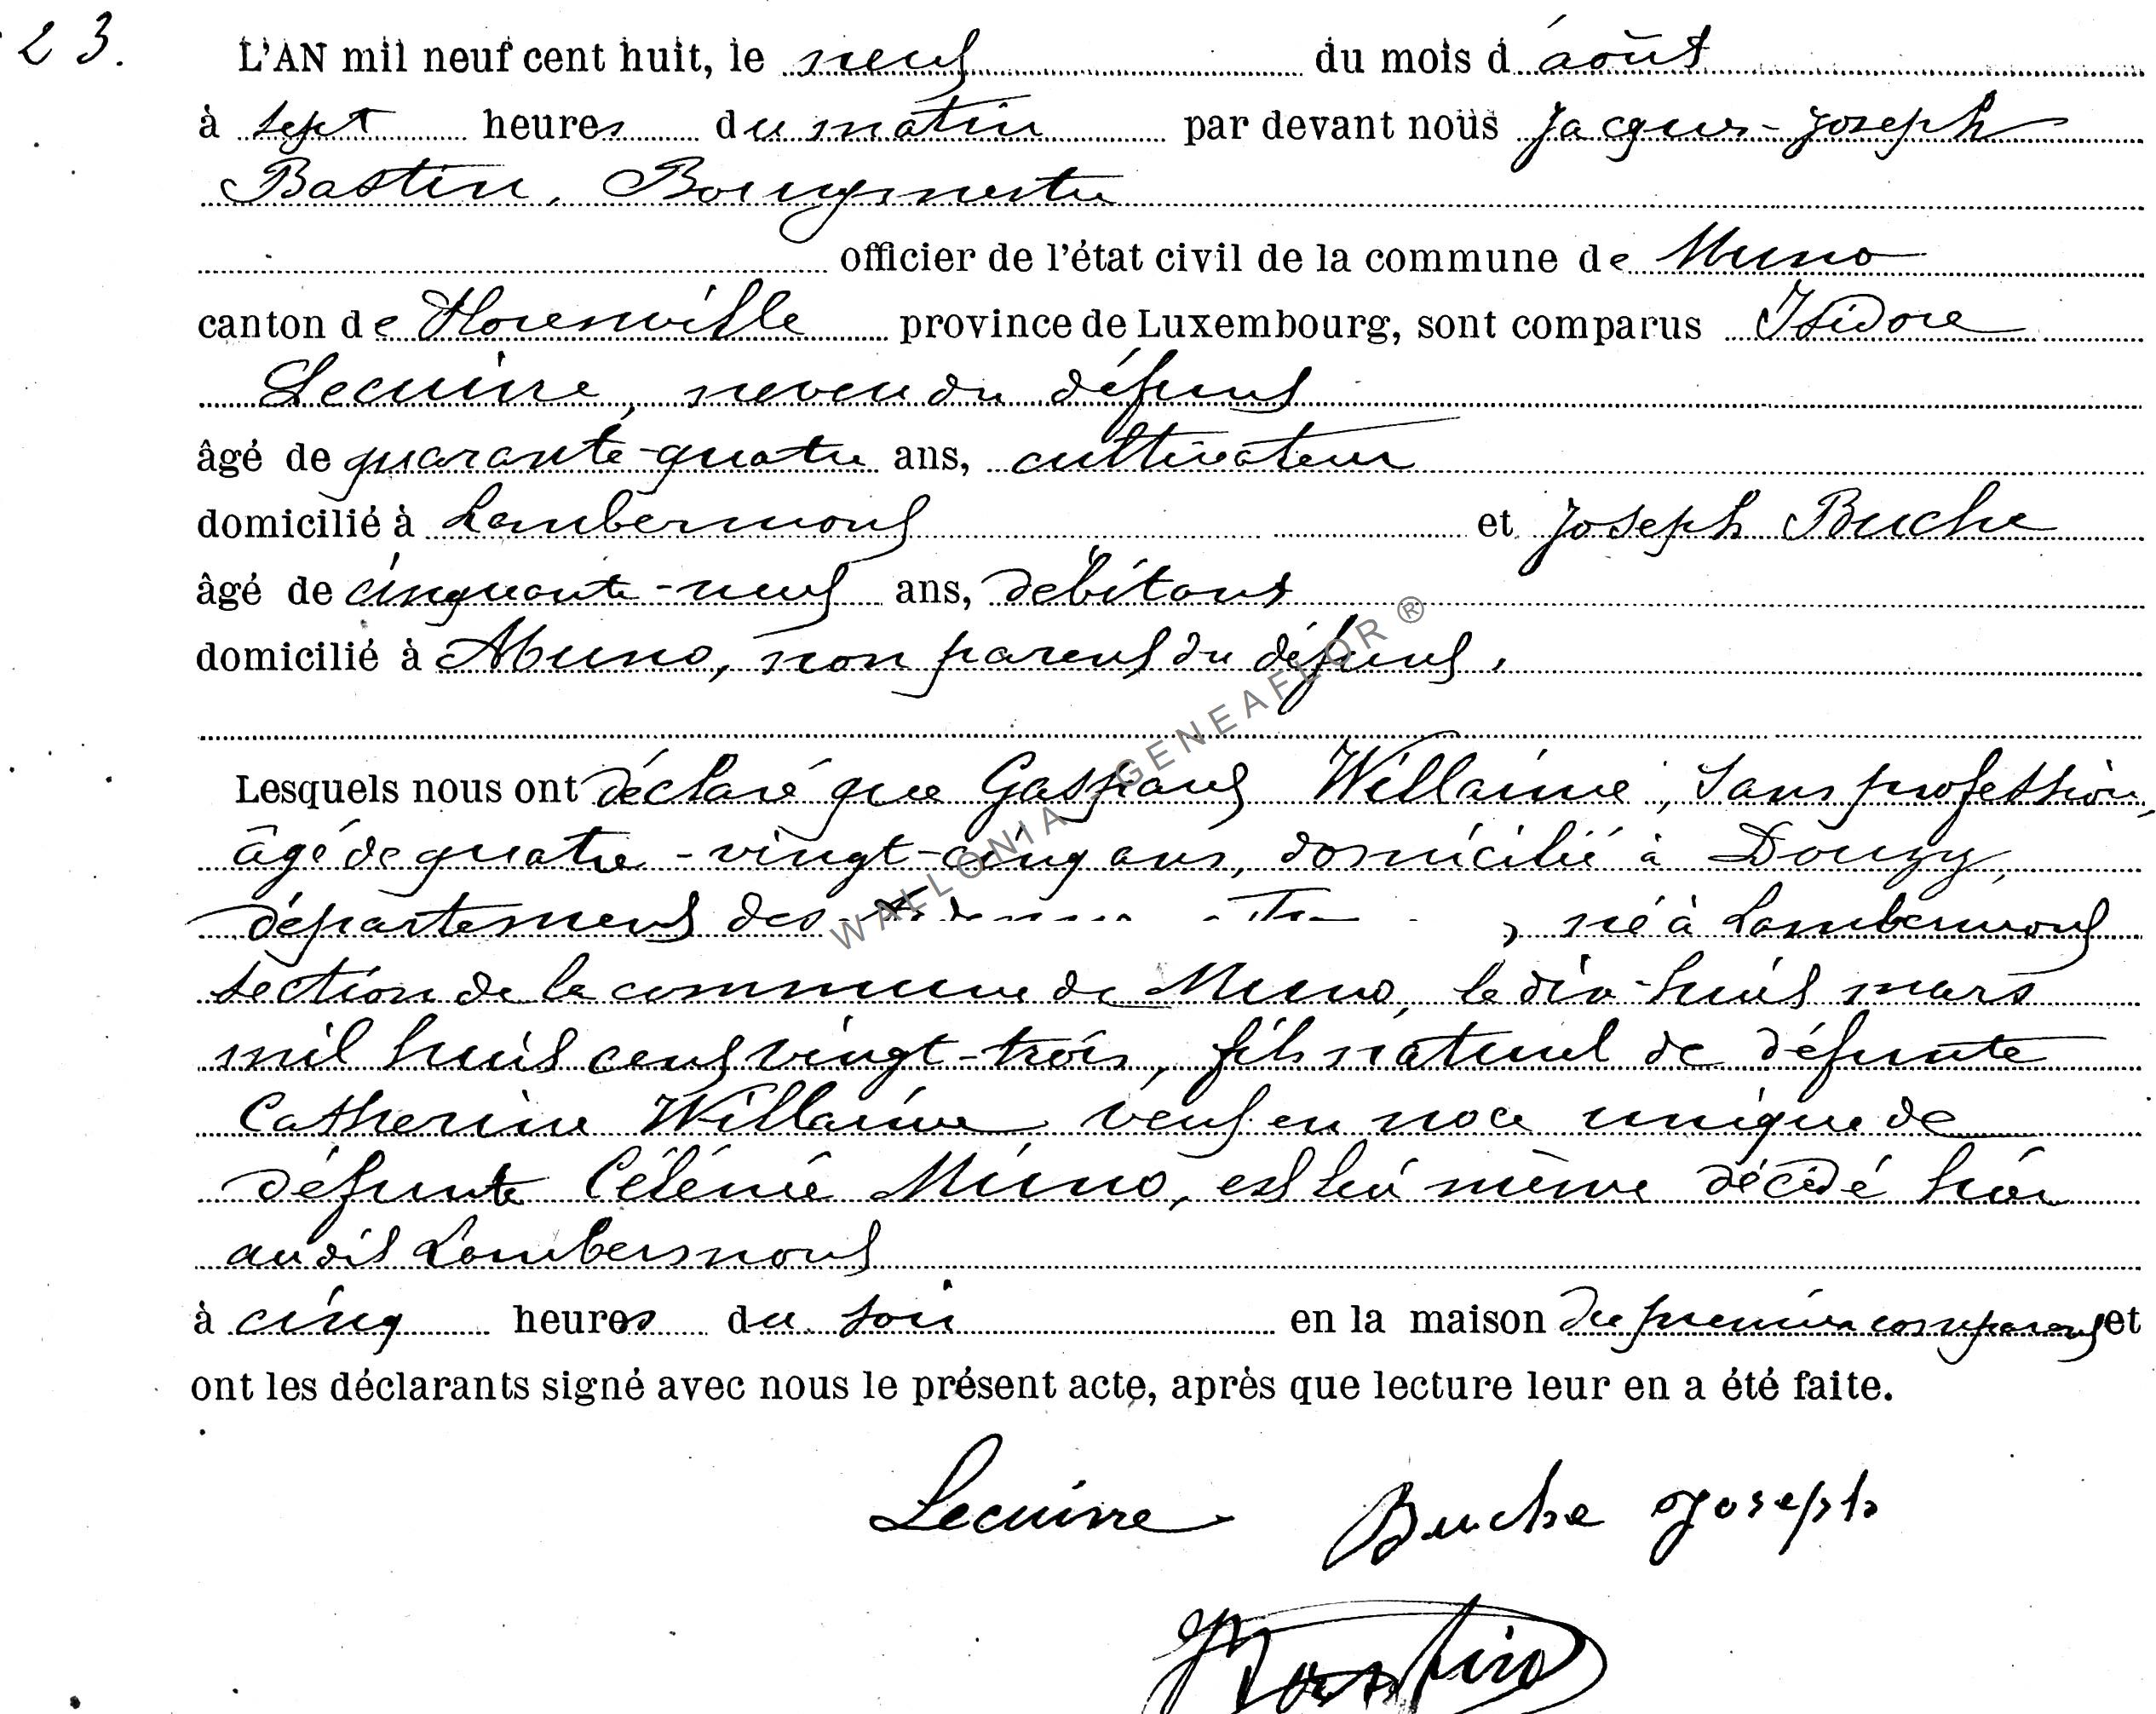 23.
L'AN mil neuf cent huit, le neuf du mois d'août
à sept heures du matin par devant nous Jacques-Joseph
Bastin, Bourgmestre
officier de l'état civil de la commune de Muno
canton de Florenville province de Luxembourg, sont comparus Isidore
Lecuivre, neveu du défunt
âgé de quarante-quatre ans, cultivateur
domicilié à Lambermont et Joseph Buche
âgé de cinquante-neuf ans, débitant
domicilié à Muno, non parent du défunt,
Lesquels nous ont déclaré que Gaspard Willaime, sans profession,
âgé de quatre-vingt-cinq ans, domicilié à Douzy,
département des , né à Lambermont
section de la commune de Muno, le dix-huit mars
mil huit cent vingt-trois, fils naturel de défunte
Catherine Willaime veuf en noce unique de
défunte Célénie Muno, est lui même décédé hier
au dit Lambermont
à cinq heures du soir en la maison du premier comparant et
ont les déclarants signé avec nous le présent acte, après que lecture leur en a été faite.
Lecuivre Buche Joseph
JBastin
WALLONIA GENEAFLOR ®